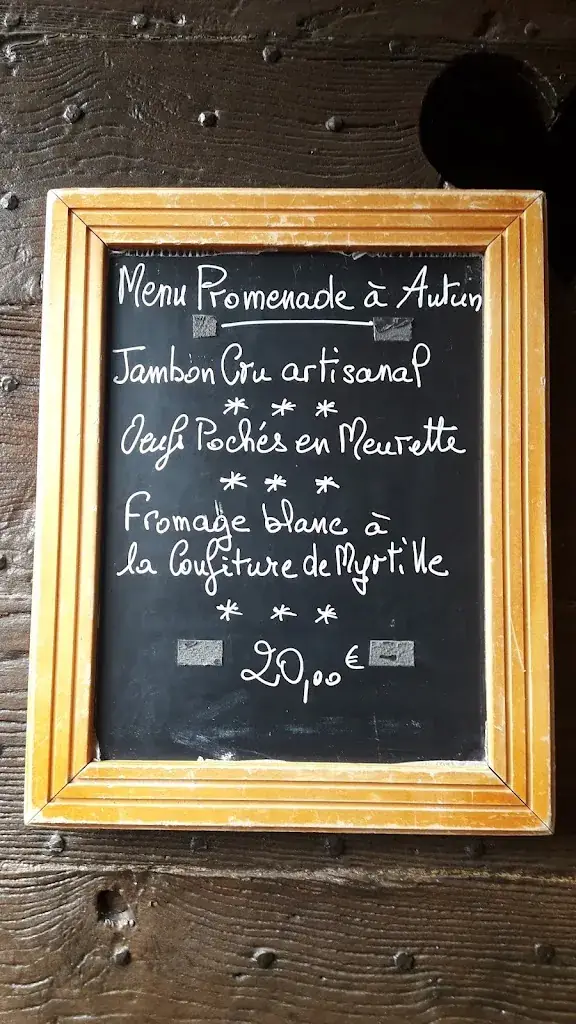 Menu Promenade à Autun
Jambon Cru artisanal
* * *
Oeufs Pochés en Meurette
* * *
Fromage blanc à
la Confiture de Myrtille
* * *
20,00 €